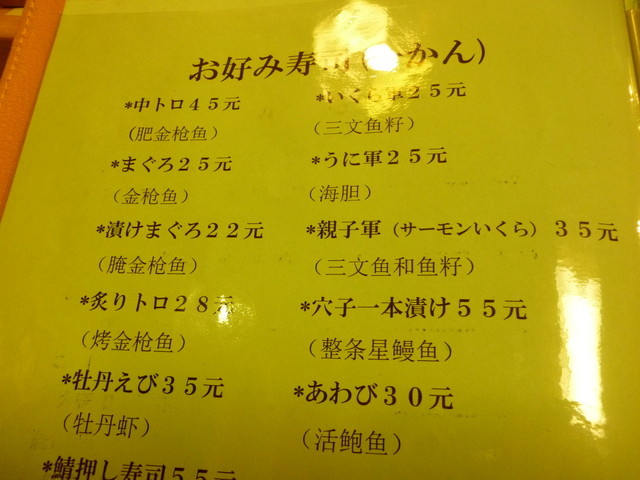 お好み寿司(いかん)
*中トロ４５元
(肥金枪鱼)
*まぐろ２５元
(金枪鱼)
*漬けまぐろ２２元
(腌金枪鱼)
*炙りトロ２８元
(烤金枪鱼)
*牡丹えび３５元
(牡丹虾)
*鯖押し寿司５５元
*いくら軍２５元
(三文鱼籽)
*うに軍２５元
(海胆)
*親子軍（サーモンいくら）３５元
(三文鱼和鱼籽)
*穴子一本漬け５５元
(整条星鳗鱼)
*あわび３０元
(活鲍鱼)